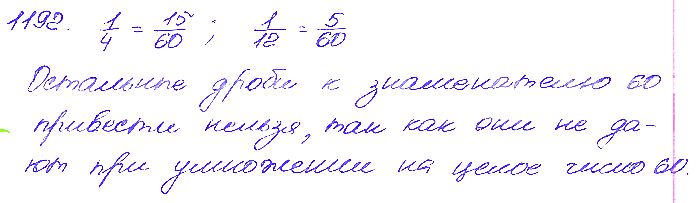 1192. 1/4 = 15/60 ; 1/12 = 5/60
Остальные дроби к знаменателю 60
привести нельзя, так как они не да-
ют при умножении на целое число 60.